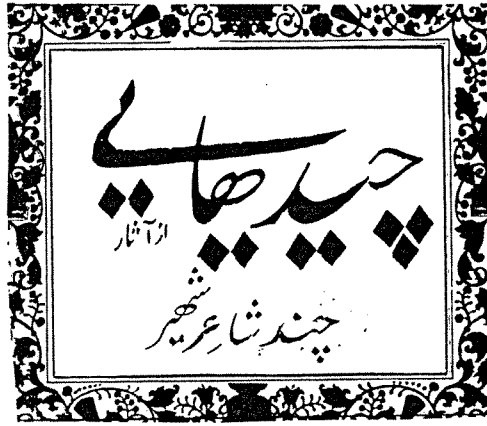 چیدیهایی
از آثار
چند شاعر شهیر